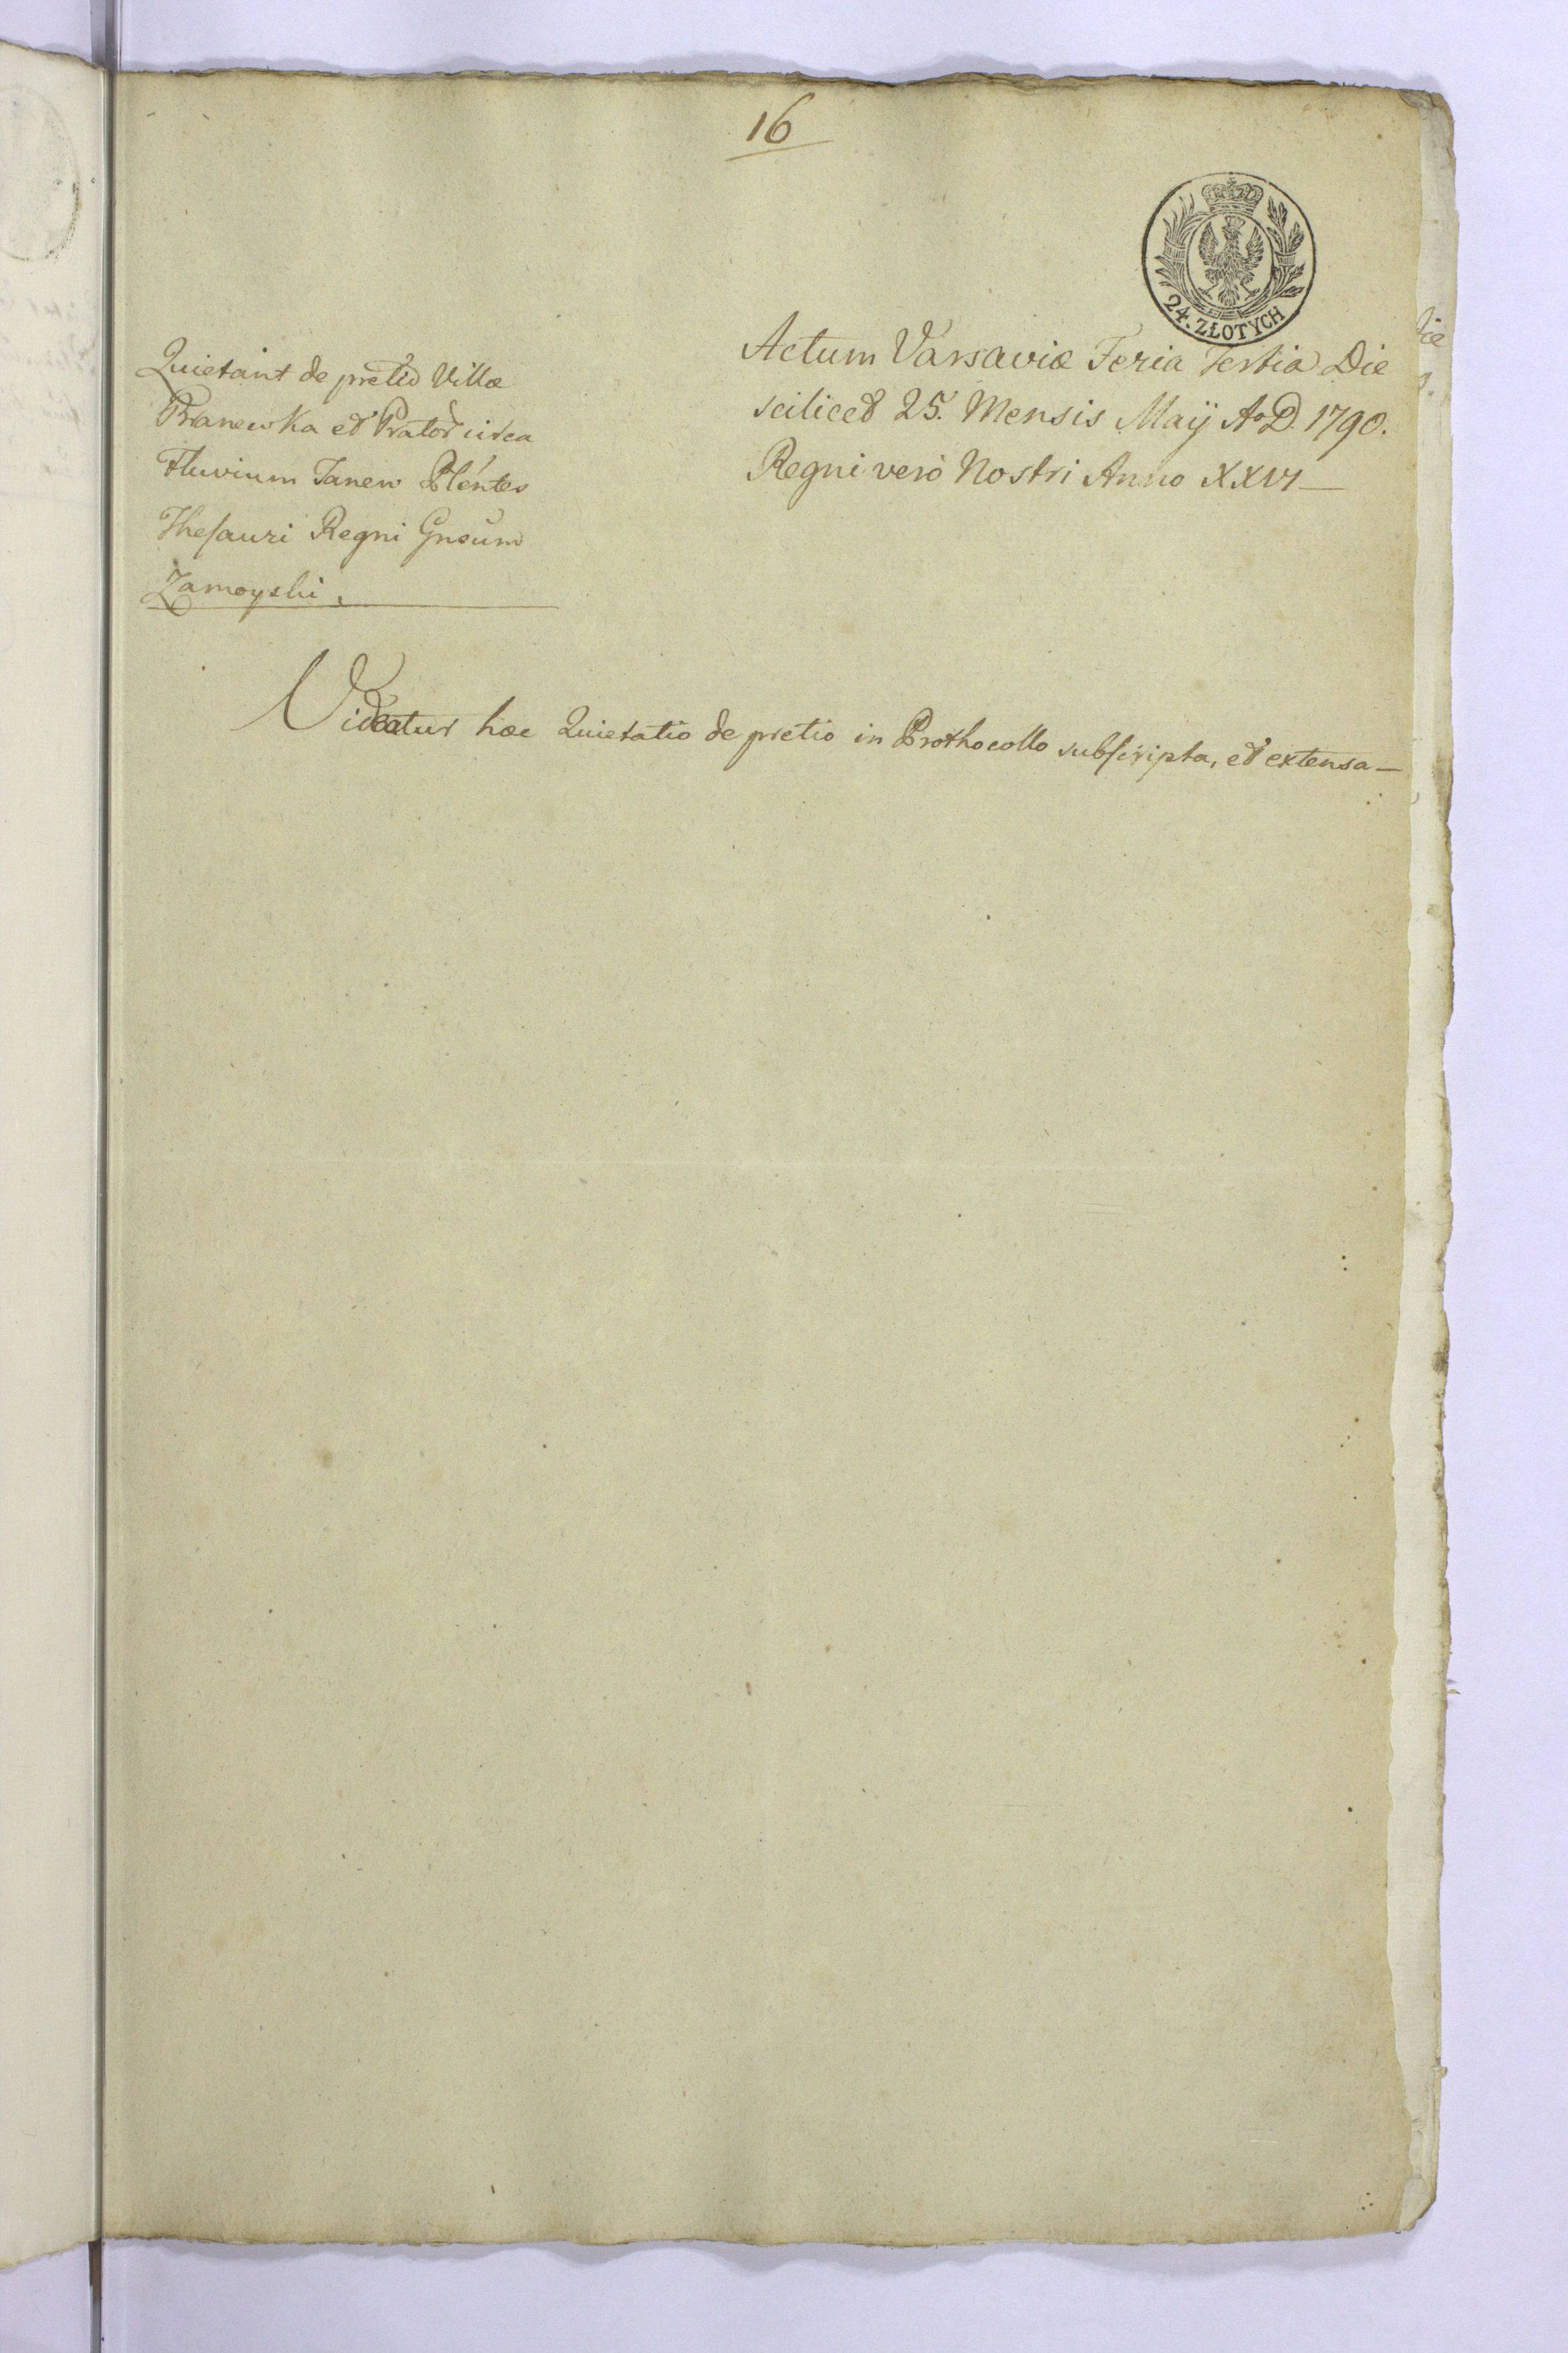 16
24. ZŁOTYCH
Actum Varsaviæ Feria Tertia Die
scilicet 25. Mensis Maÿ Ao D. 1790.
Regni verò Nostri Anno XXVI
Quietant de pretio Villæ
et Prator circa
Fluvium Tanew
Thesauri Regni Gnsum
Zamoyski.
Videatur hæc Quietatio de pretio in Prothocollo subscripta, et extensa